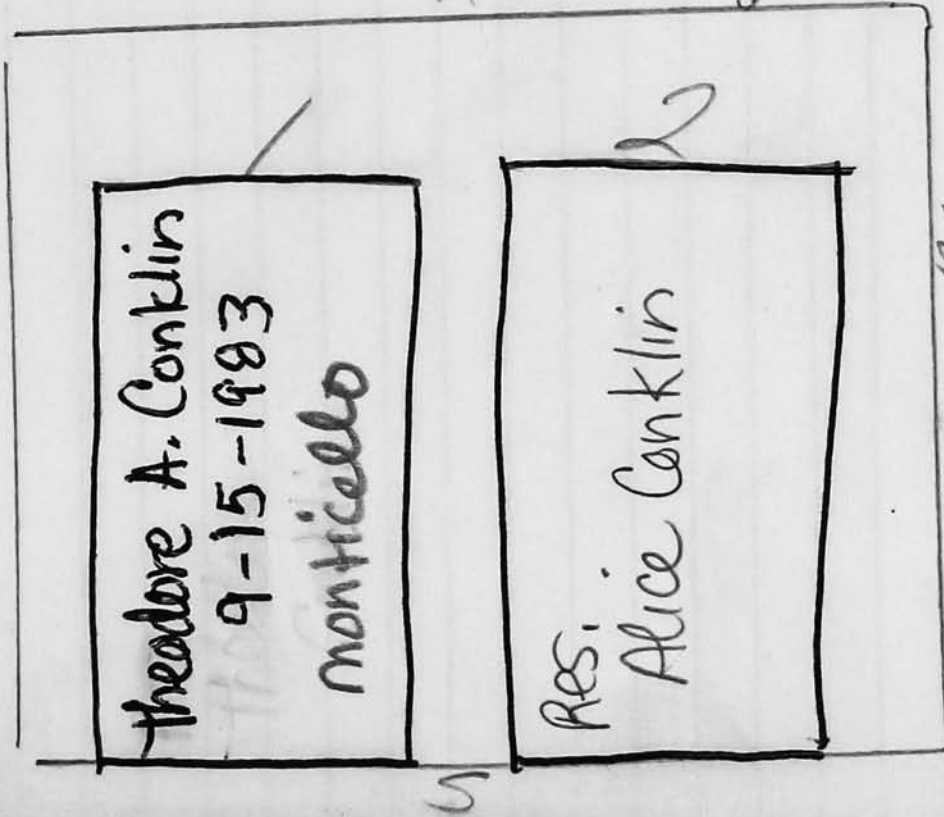 1
Theodore A. Conklin
9-15-1983
monticello
2
Res.
Alice Conklin